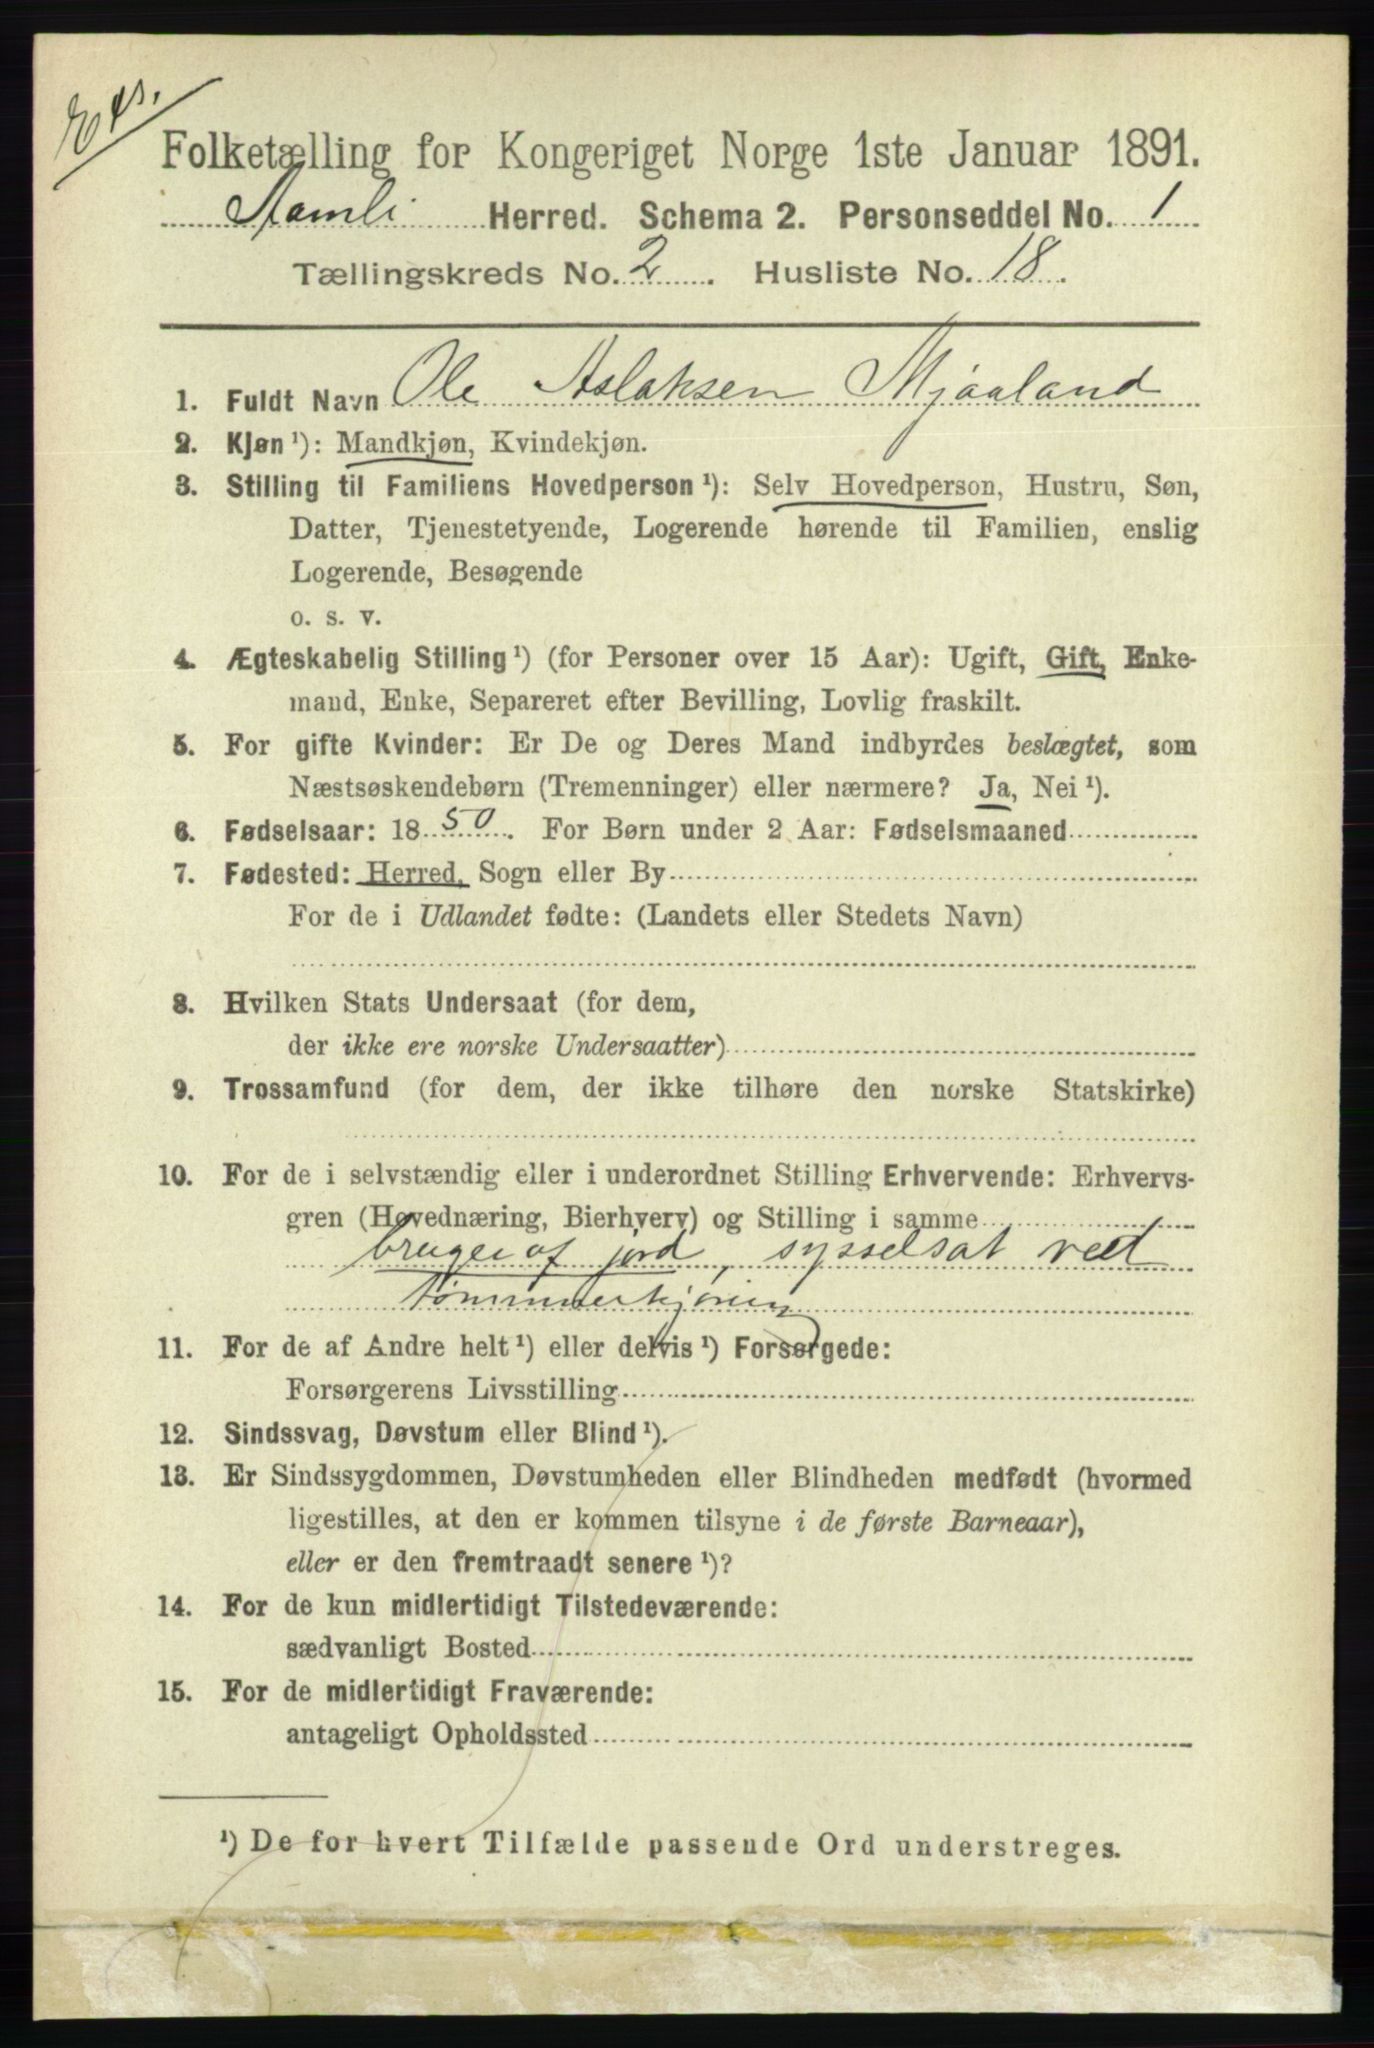 Folketælling for Kongeriget Norge 1ste Januar 1891.
Aamli Herred. Schema 2. Personseddel No. 1
Tællingskreds No. 2. Husliste No. 18.
1. Fuldt Navn Ole Aslaksen Mjaaland
2. Kjøn ¹): Mandkjøn, Kvindekjøn.
3. Stilling til Familiens Hovedperson ¹): Selv Hovedperson, Hustru, Søn,
Datter, Tjenestetyende, Logerende hørende til Familien, enslig
Logerende, Besøgende
o. s. v.
4. Ægteskabelig Stilling ¹) (for Personer over 15 Aar): Ugift, Gift, Enke-
mand, Enke, Separeret efter Bevilling, Lovlig fraskilt.
5. For gifte Kvinder: Er De og Deres Mand indbyrdes beslægtet, som
Næstsøskendebørn (Tremenninger) eller nærmere? Ja, Nei ¹).
6. Fødselsaar: 18 50. For Børn under 2 Aar: Fødselsmaaned
7. Fødested: Herred, Sogn eller By
For de i Udlandet fødte: (Landets eller Stedets Navn)
8. Hvilken Stats Undersaat (for dem,
der ikke ere norske Undersaatter)
9. Trossamfund (for dem, der ikke tilhøre den norske Statskirke)
10. For de i selvstændig eller i underordnet Stilling Erhvervende: Erhvervs-
gren (Hovednæring, Bierhverv) og Stilling i samme
bruger af jord, sysselsat ved
tømmerkjøring
11. For de af Andre helt ¹) eller delvis ¹) Forsørgede:
Forsørgerens Livsstilling
12. Sindssvag, Døvstum eller Blind ¹).
13. Er Sindssygdommen, Døvstumheden eller Blindheden medfødt (hvormed
ligestilles, at den er kommen tilsyne i de første Barneaar),
eller er den fremtraadt senere ¹)?
14. For de kun midlertidigt Tilstedeværende:
sædvanligt Bosted
15. For de midlertidigt Fraværende:
antageligt Opholdssted
¹) De for hvert Tilfælde passende Ord understreges.